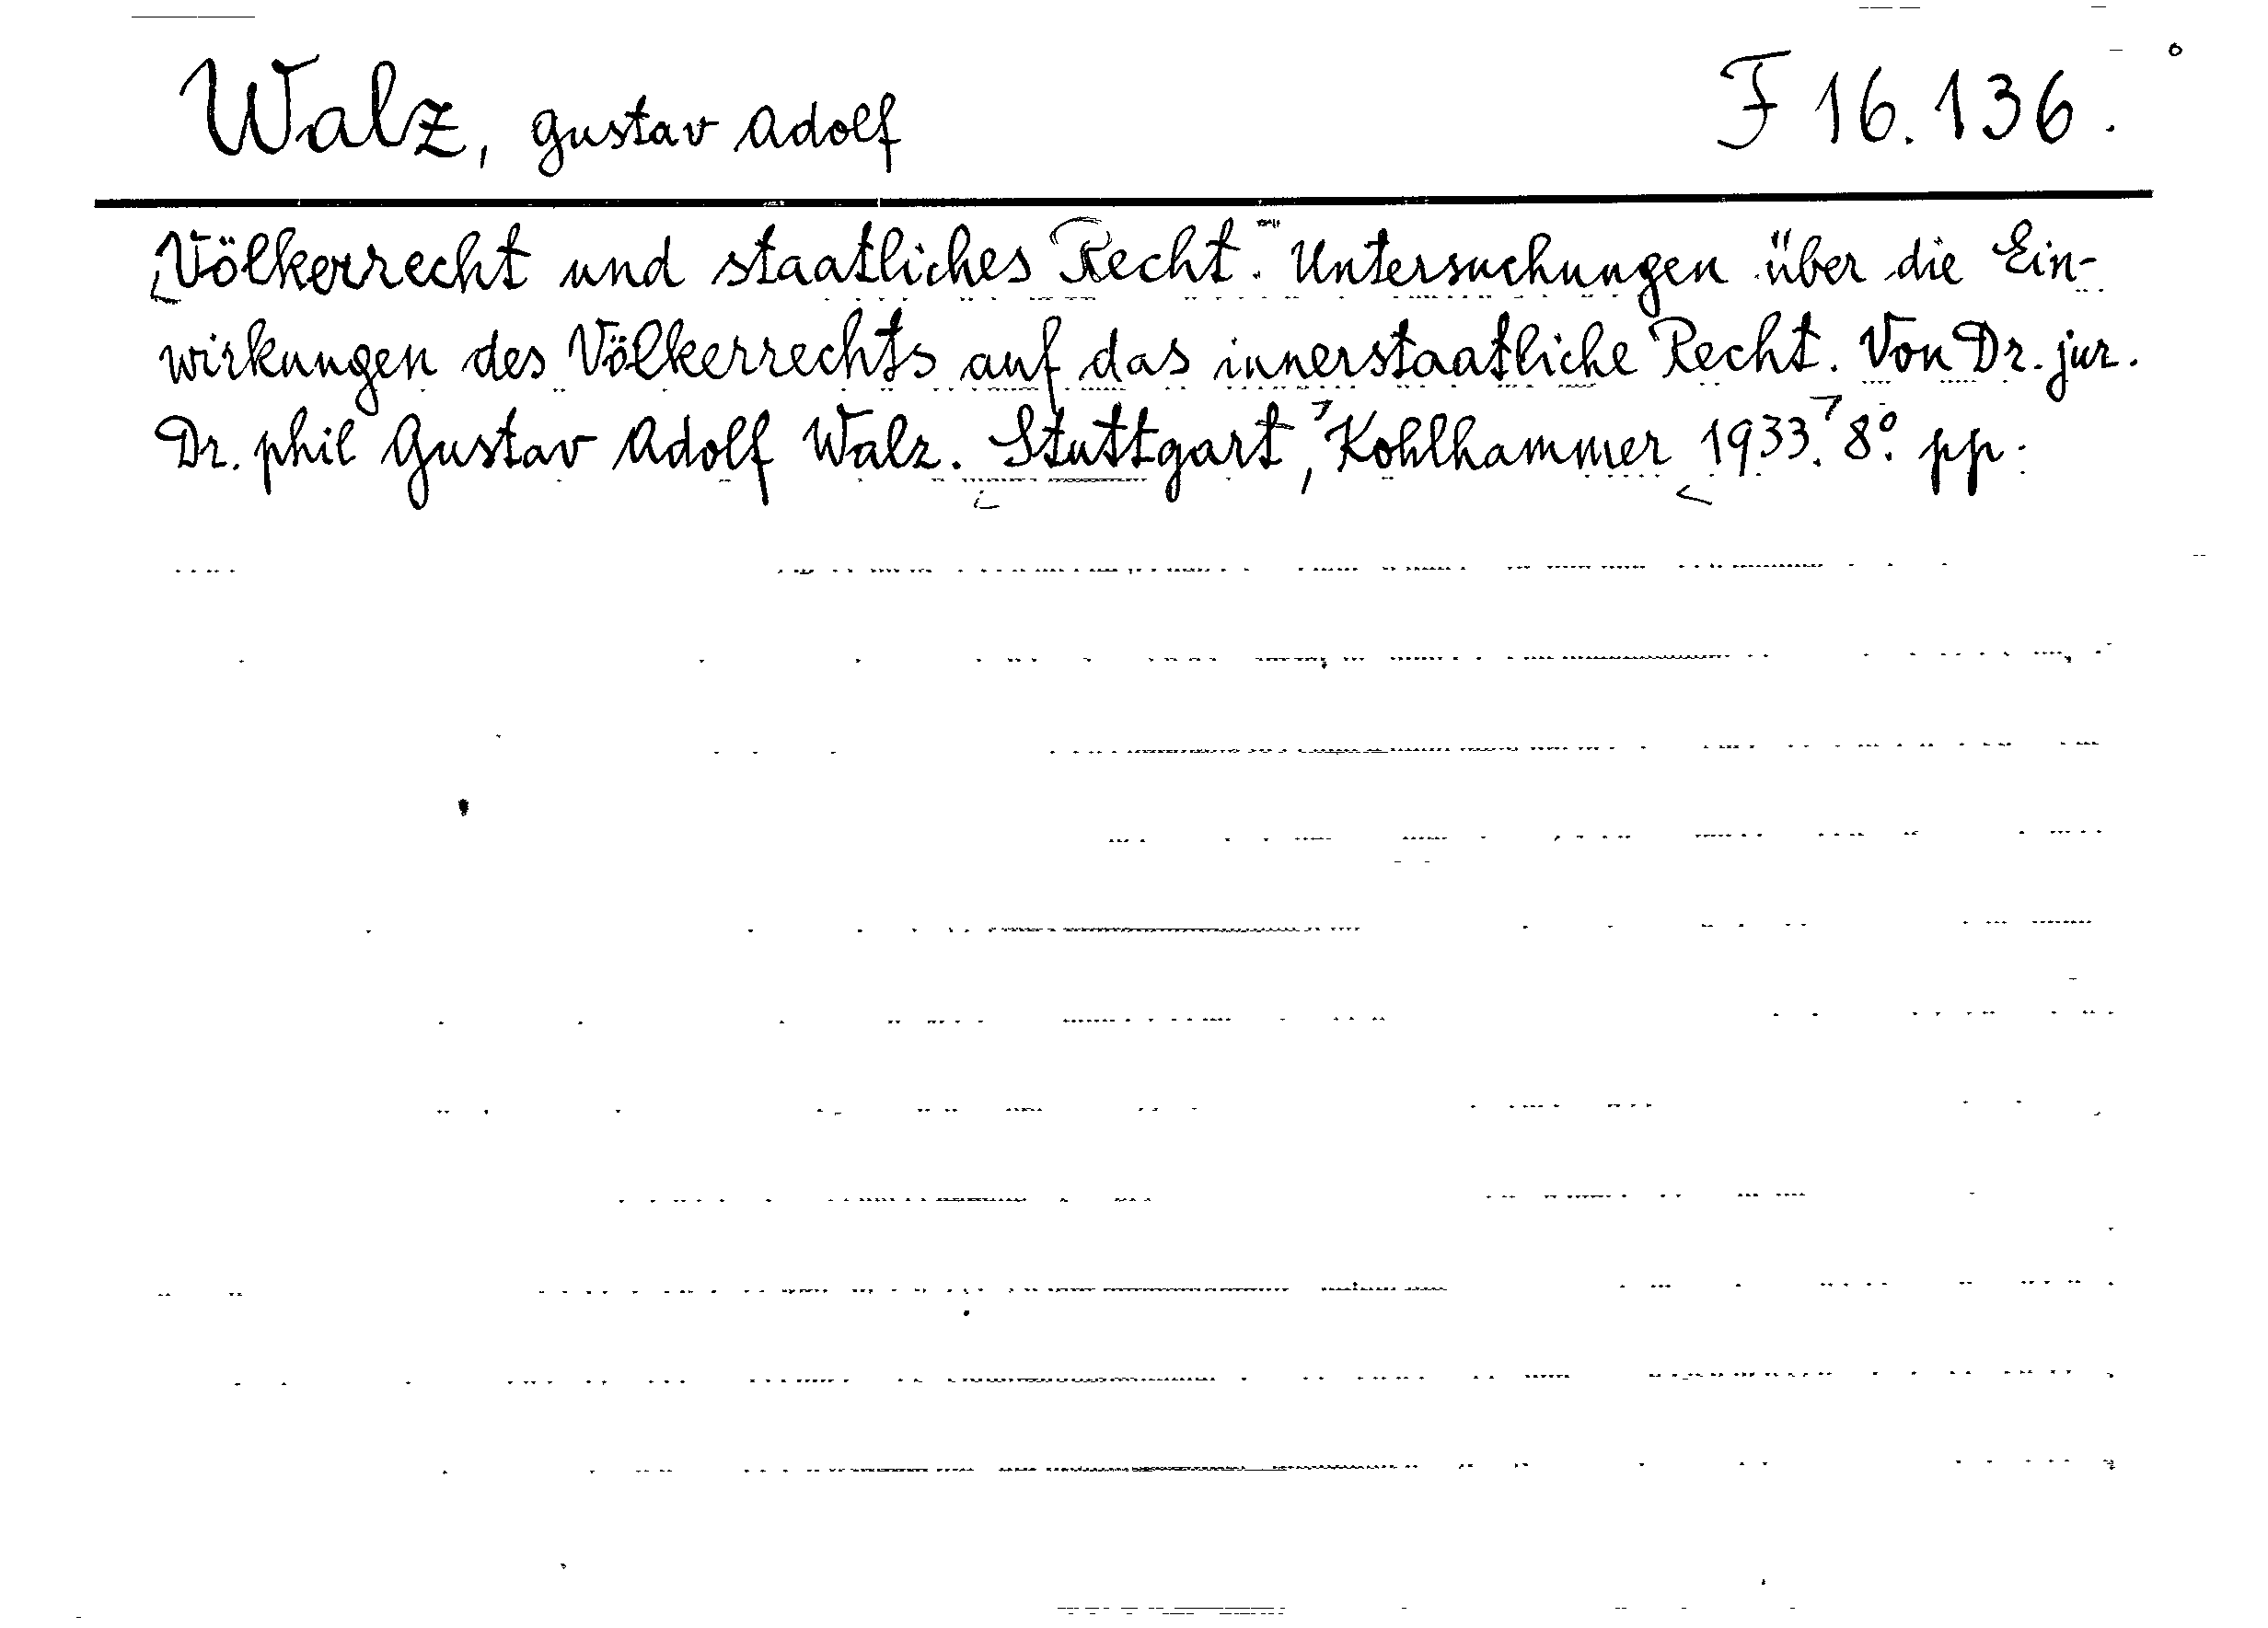 Walz, Gustav Adolf F 16.136.
Völkerrecht und staatliches Recht. Untersuchungen über die Ein-
wirkungen des Völkerrechts auf das innerstaatliche Recht. Von Dr. jur.
Dr. phil Gustav Adolf Walz. Stuttgart, Kohlhammer 1933. 8°. pp.